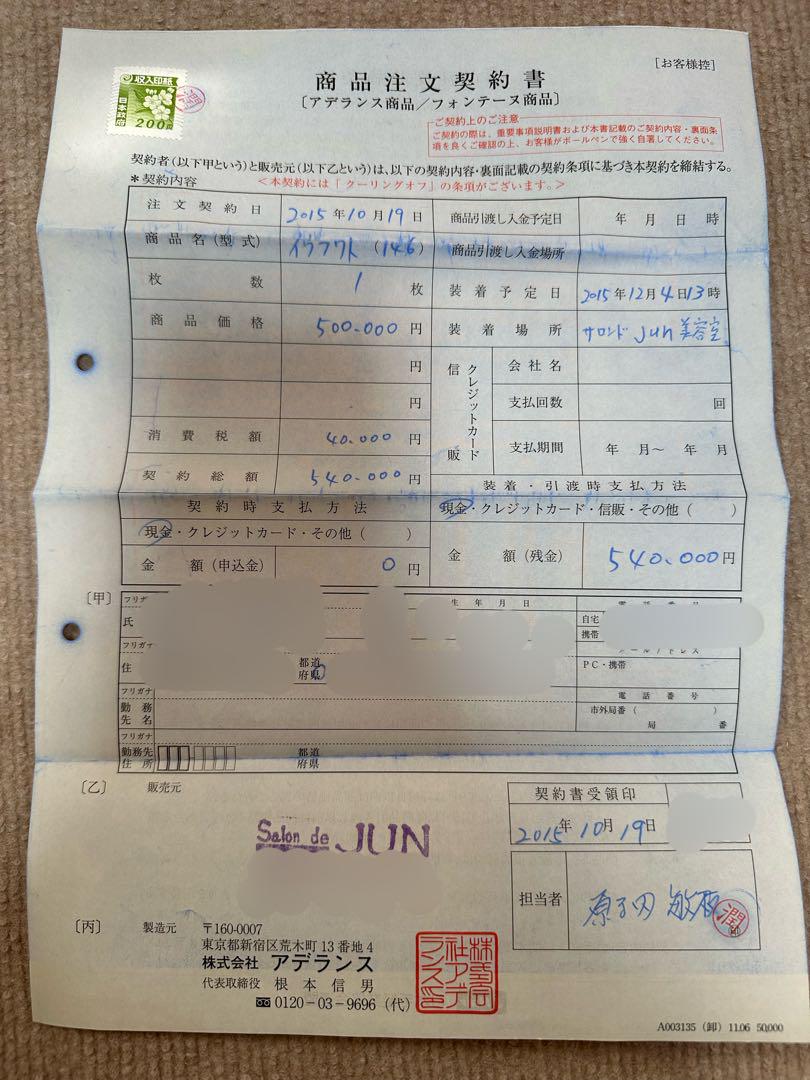 [お客様控]
収入印紙
日本政府
200円
商品注文契約書
〔アデランス商品／フォンテーヌ商品〕
ご契約上のご注意
ご契約の際は、重要事項説明書および本書記載のご契約内容・裏面条
項を良くご確認の上、お客様がボールペンで強く自署してください。
契約者（以下甲という）と販売元（以下乙という）は、以下の契約内容・裏面記載の契約条項に基づき本契約を締結する。
＊契約内容 ＜本契約には「クーリングオフ」の条項がございます。＞
注文契約日 2015年10月19日 商品引渡し入金予定日 年 月 日 時
商品名（型式） (146) 商品引渡し入金場所
枚数 1 枚 装着予定日 2015年12月4日13時
商品価格 500.000円 装着場所 サロンド Jun 美容室
円 信販 クレジットカード 会社名
円 支払回数 回
消費税額 40.000円 支払期間 年 月〜 年 月
契約総額 540.000円 装着・引渡時支払方法
契約時支払方法 現金・クレジットカード・信販・その他（ ）
現金・クレジットカード・その他（ ）
金額（申込金） 0円 金額（残金） 540.000円
〔甲〕 フリガ 生年月日
氏 自宅
携帯
フリガナ
住 都道府県 PC・携帯
フリガナ 電話番号
勤務先名 市外局番（ ）
局 番
フリガナ
勤務先住所 都道府県
〔乙〕 販売元
Salon de JUN
契約書受領印
2015年10月19日
担当者
潤
印
〔丙〕 製造元 〒160-0007
東京都新宿区荒木町13番地4
株式会社 アデランス
代表取締役 根本信男
0120-03-9696（代）
株式会社アデランス印
A003135（卸）11.06 50,000